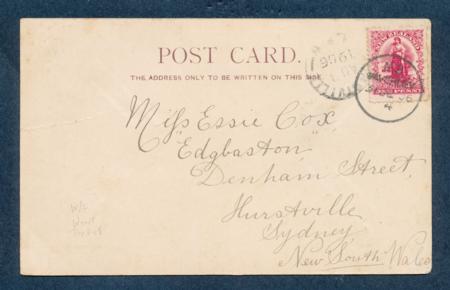 NEW ZEALAND
ONE PENNY
POST CARD.
THE ADDRESS ONLY TO BE WRITTEN ON THIS SIDE
Miss Essie Cox
"Edgbaston"
Denham Street,
Hurstville
Sydney
New South Wales